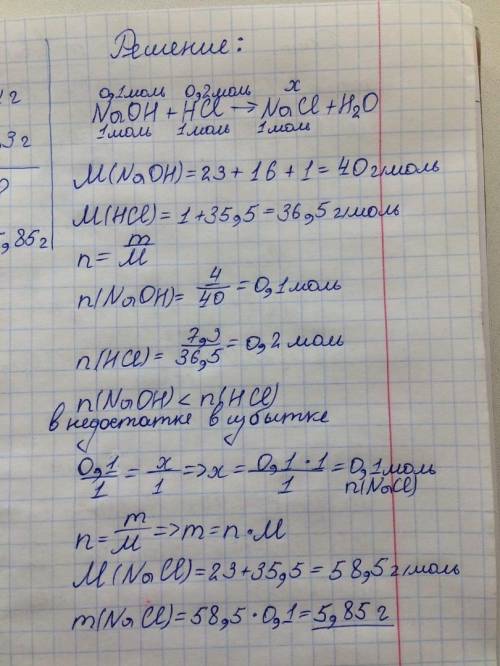 г
3 г
5,85 г
Решение:
0,1моль 0,2моль x
NaOH + HCl → NaCl + H₂O
1моль 1моль 1моль
M(NaOH) = 23 + 16 + 1 = 40 г/моль
M(HCl) = 1 + 35,5 = 36,5 г/моль
n = m/M
n(NaOH) = 4/40 = 0,1 моль
n(HCl) = 7,3/36,5 = 0,2 моль
n(NaOH) < n(HCl)
в недостатке в избытке
0,1/1 = x/1 => x = 0,1 · 1/1 = 0,1 моль
n(NaCl)
n = m/M => m = n · M
M(NaCl) = 23 + 35,5 = 58,5 г/моль
m(NaCl) = 58,5 · 0,1 = 5,85 г